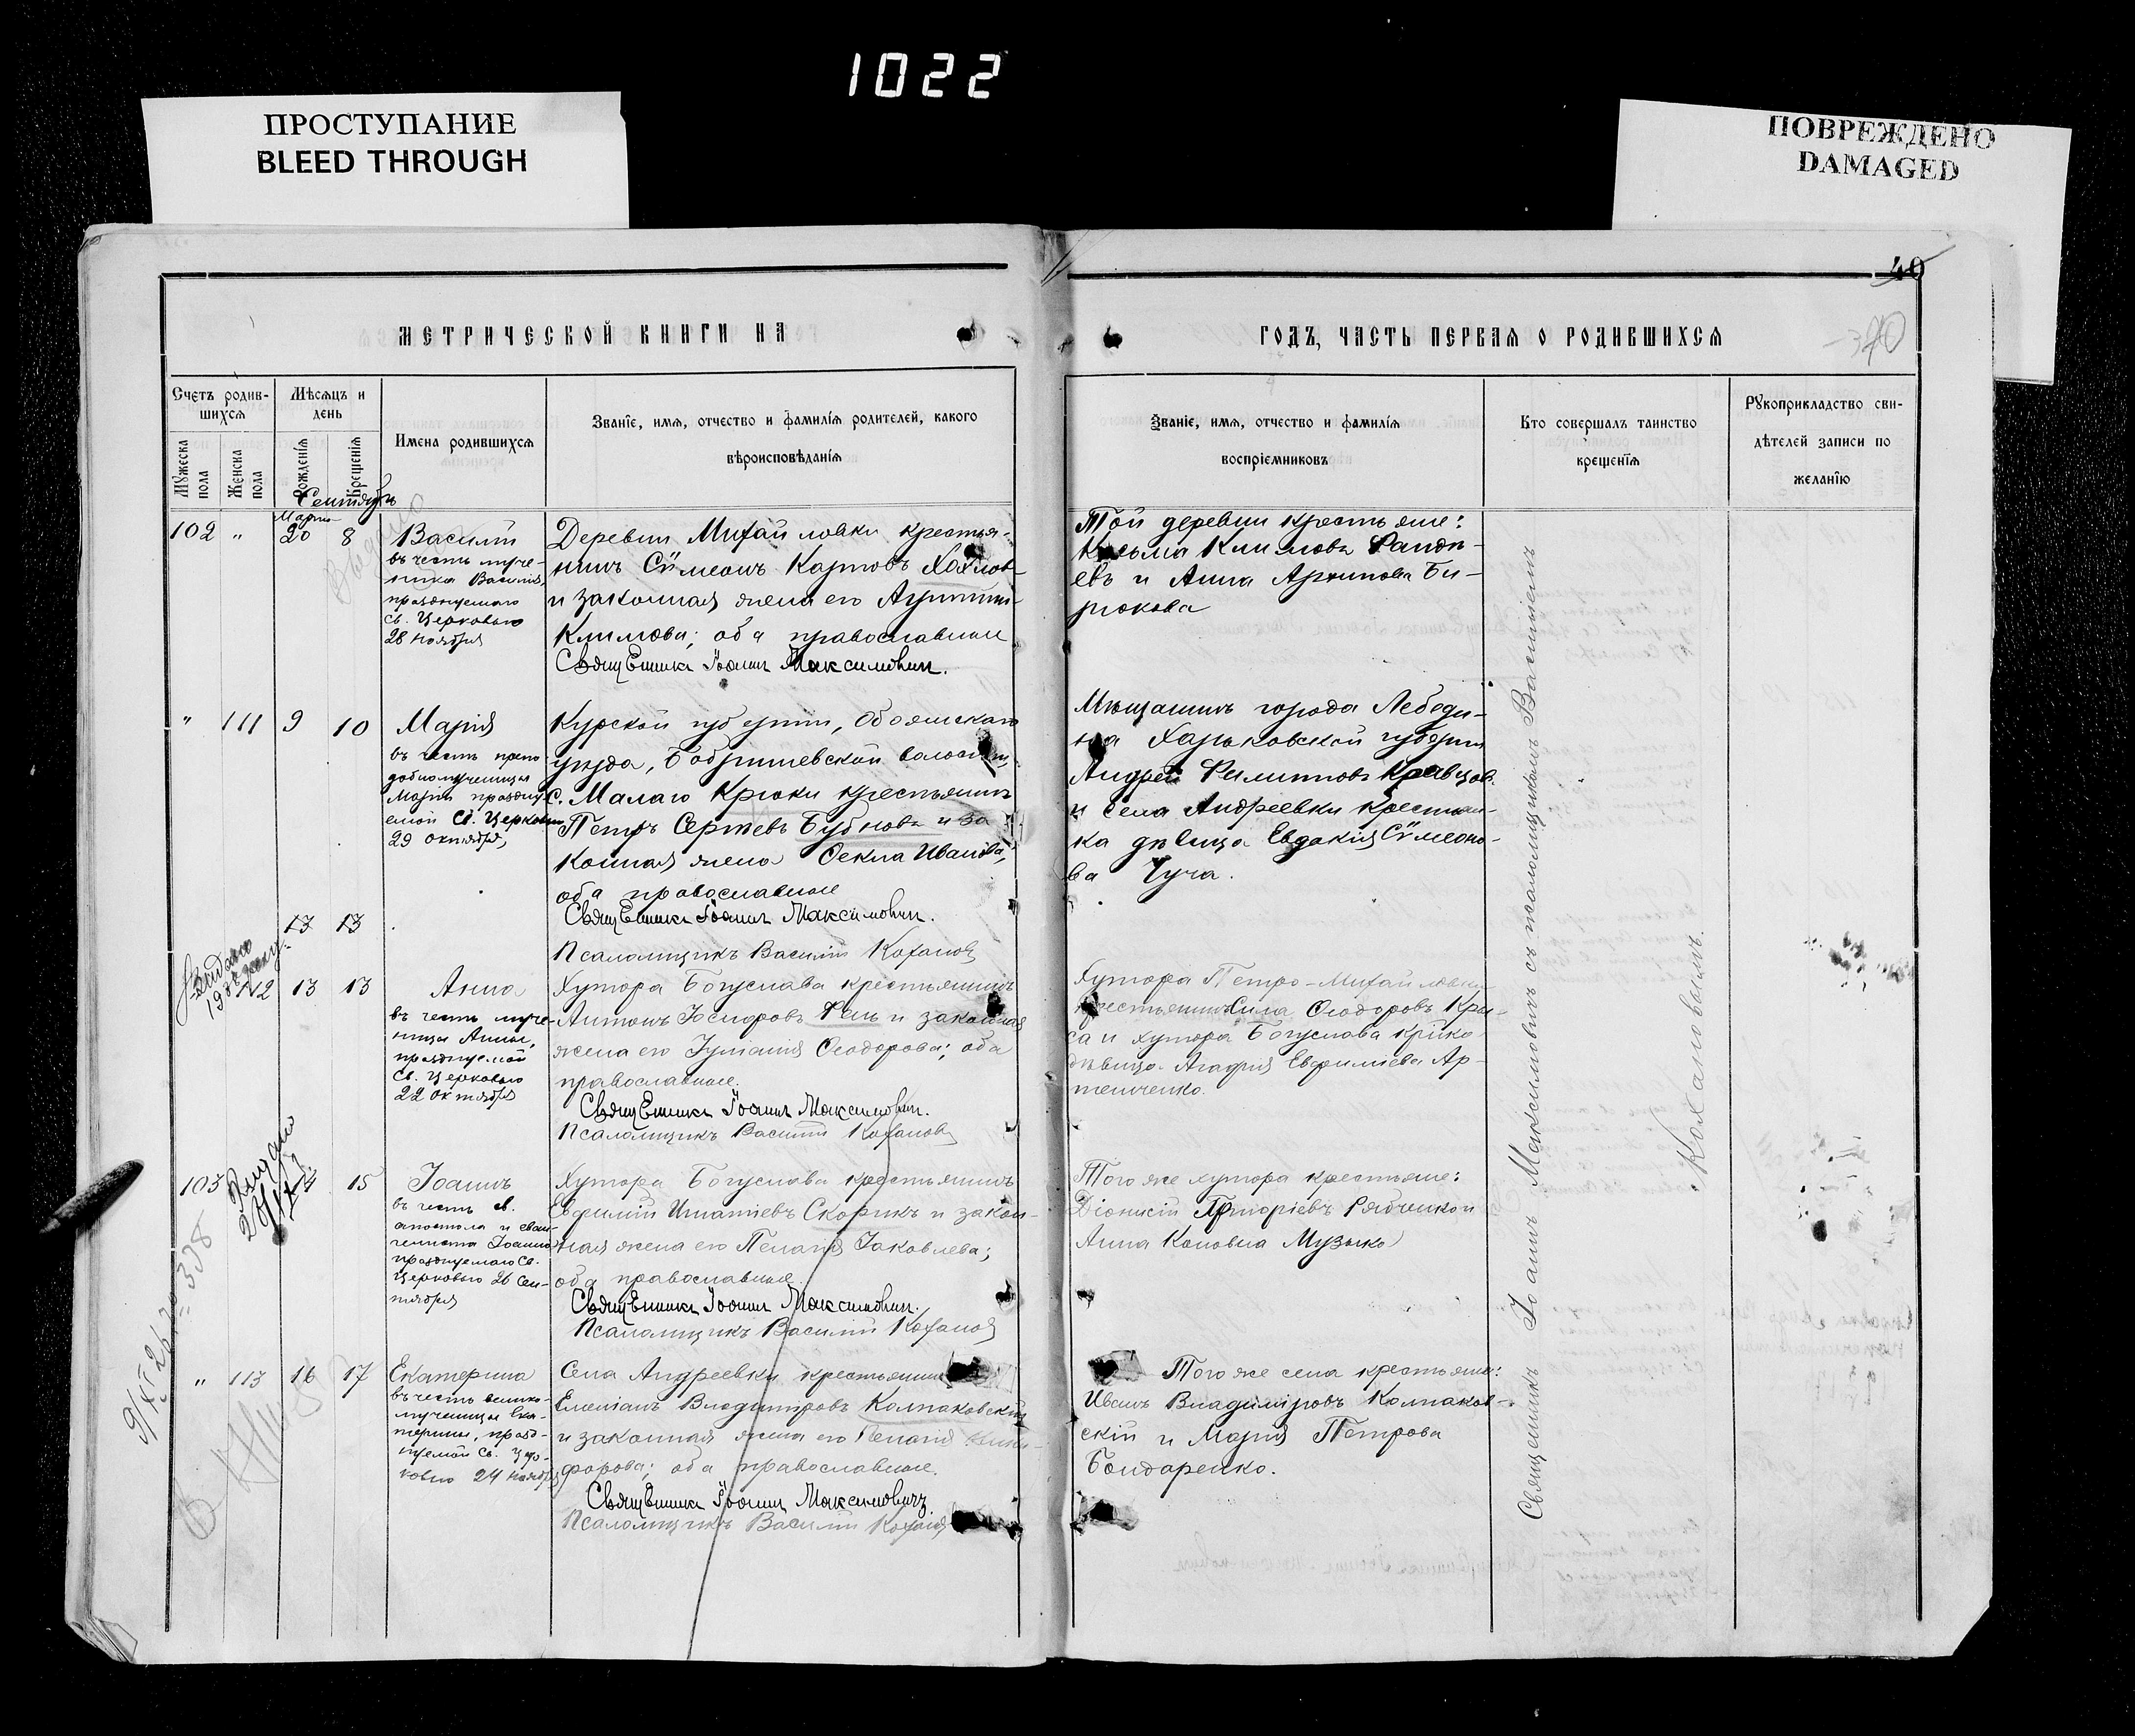 1022
ПРОСТУПАНИЕ
BLEED THROUGH
ПОВРЕЖДЕНО
DAMAGED
40
МЕТРИЧЕСКОЙ КНИГИ НА
ГОДЪ, ЧАСТЬ ПЕРВАЯ О РОДИВШИХСЯ
Счетъ родив-
шихся
Мужеска
пола
Женска
пола
Мѣсяцъ и
день
Рожденія
Крещенія
Имена родившихся
Званіе, имя, отчество и фамилія родителей, какого
вѣроисповѣданія
Званіе, имя, отчество и фамилія
воспріемниковъ
Кто совершалъ таинство
крещенія
Рукоприкладство сви-
дѣтелей записи по
желанію
Сентябрь
102 " Марта 20 8
Василій
въ честь муче-
ника Василія,
празднуемаго
св. Церковью
28 ноября
Деревни Михайловки крестья-
нинъ Сѵмеонъ Карповъ Хохлов
и законная жена его
Климова; оба православные
Священникъ Іоаннъ Максимовичъ.
Той деревни крестьяне:
Козьма Климовъ
евъ и Анна Архипова Би-
рюкова
" 111 9 10
Марія
въ честь препо
добномученицы
Маріи праздну-
емой св. Церковью
29 октября,
Курской губерніи, Обоянскаго
уѣзда, Бобрышевской волости,
с. Малаго Крюки крестьянинъ
Петръ Сергѣевъ Бубновъ и за
конная жена Ѳекла Иванова;
оба православные
Священникъ Іоаннъ Максимовичъ.
Псаломщикъ Василій Кохановъ
Мѣщанинъ города Лебеди-
на Харьковской губерніи
Андрей Филипповъ Кравцов.
и села Андреевки крестьян-
ка дѣвица Евдокія Сѵмеоно-
ва Чуча.
13 13
112 13 13
Анна
въ честь муче-
ницы Анны,
празднуемой
св. Церковью
22 октября
Хутора Богуслава крестьянинъ
Антонъ и законная
жена его Іуліанія Ѳеодорова; оба
православные.
Священникъ Іоаннъ Максимовичъ.
Псаломщикъ Василій Кохановъ
Хутора Петро-Михайловки
крестьянинъ Сила Ѳеодоровъ Кры-
са и хутора Богуслава
дѣвица Агафія Евфиміева Ар-
теменко.
103 15
Іоаннъ
въ честь св.
апостола и еван-
гелиста Іоанна
празднуемаго св.
Церковью 26 сен-
тября
Хутора Богуслава крестьянинъ
Евфимій Игнатіевъ Скорикъ и закон-
ная жена его Пелагія Іаковлева;
оба православные.
Священникъ Іоаннъ Максимовичъ.
Псаломщикъ Василій Кохановъ
Того же хутора крестьяне:
Діонисій Григоріевъ Рябченко и
Анна Кононова Музыко
" 113 16 17
Екатерина
въ честь велико-
мученицы Ека-
терины, празд-
нуемой св. Цер-
ковью 24 ноября
Села Андреевки крестьянинъ
Емеліанъ Владиміровъ Колпаковскій
и законная жена его Пелагія Ники-
форова; оба православные.
Священникъ Іоаннъ Максимовичъ
Псаломщикъ Василій Кохановъ
Того же села крестьяне:
Иванъ Владиміровъ Колпаков-
скій и Марія Петрова
Бондаренко.
Священникъ Іоаннъ Максимовичъ съ псаломщикомъ Василіемъ
Кохановымъ.